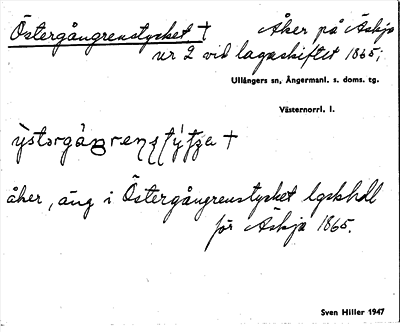 Östergångrenstycket † Åker på Äskja
nr 2 vid lagaskiftet 1865;
Ullångers sn, Ångermanl. s. doms. tg.
Västernorrl. l.
åker, äng i Östergångrenstycket lgskhdl
för Äskja 1865.
Sven Hiller 1947